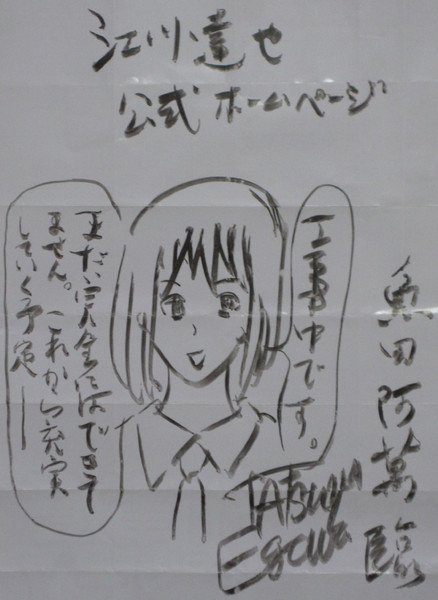 江川達也
公式ホームページ
工事中です。
まだ完全にはできて
ません。これから充実
していく予定──
魚田阿萬臨
TATSUYA
EGAWA